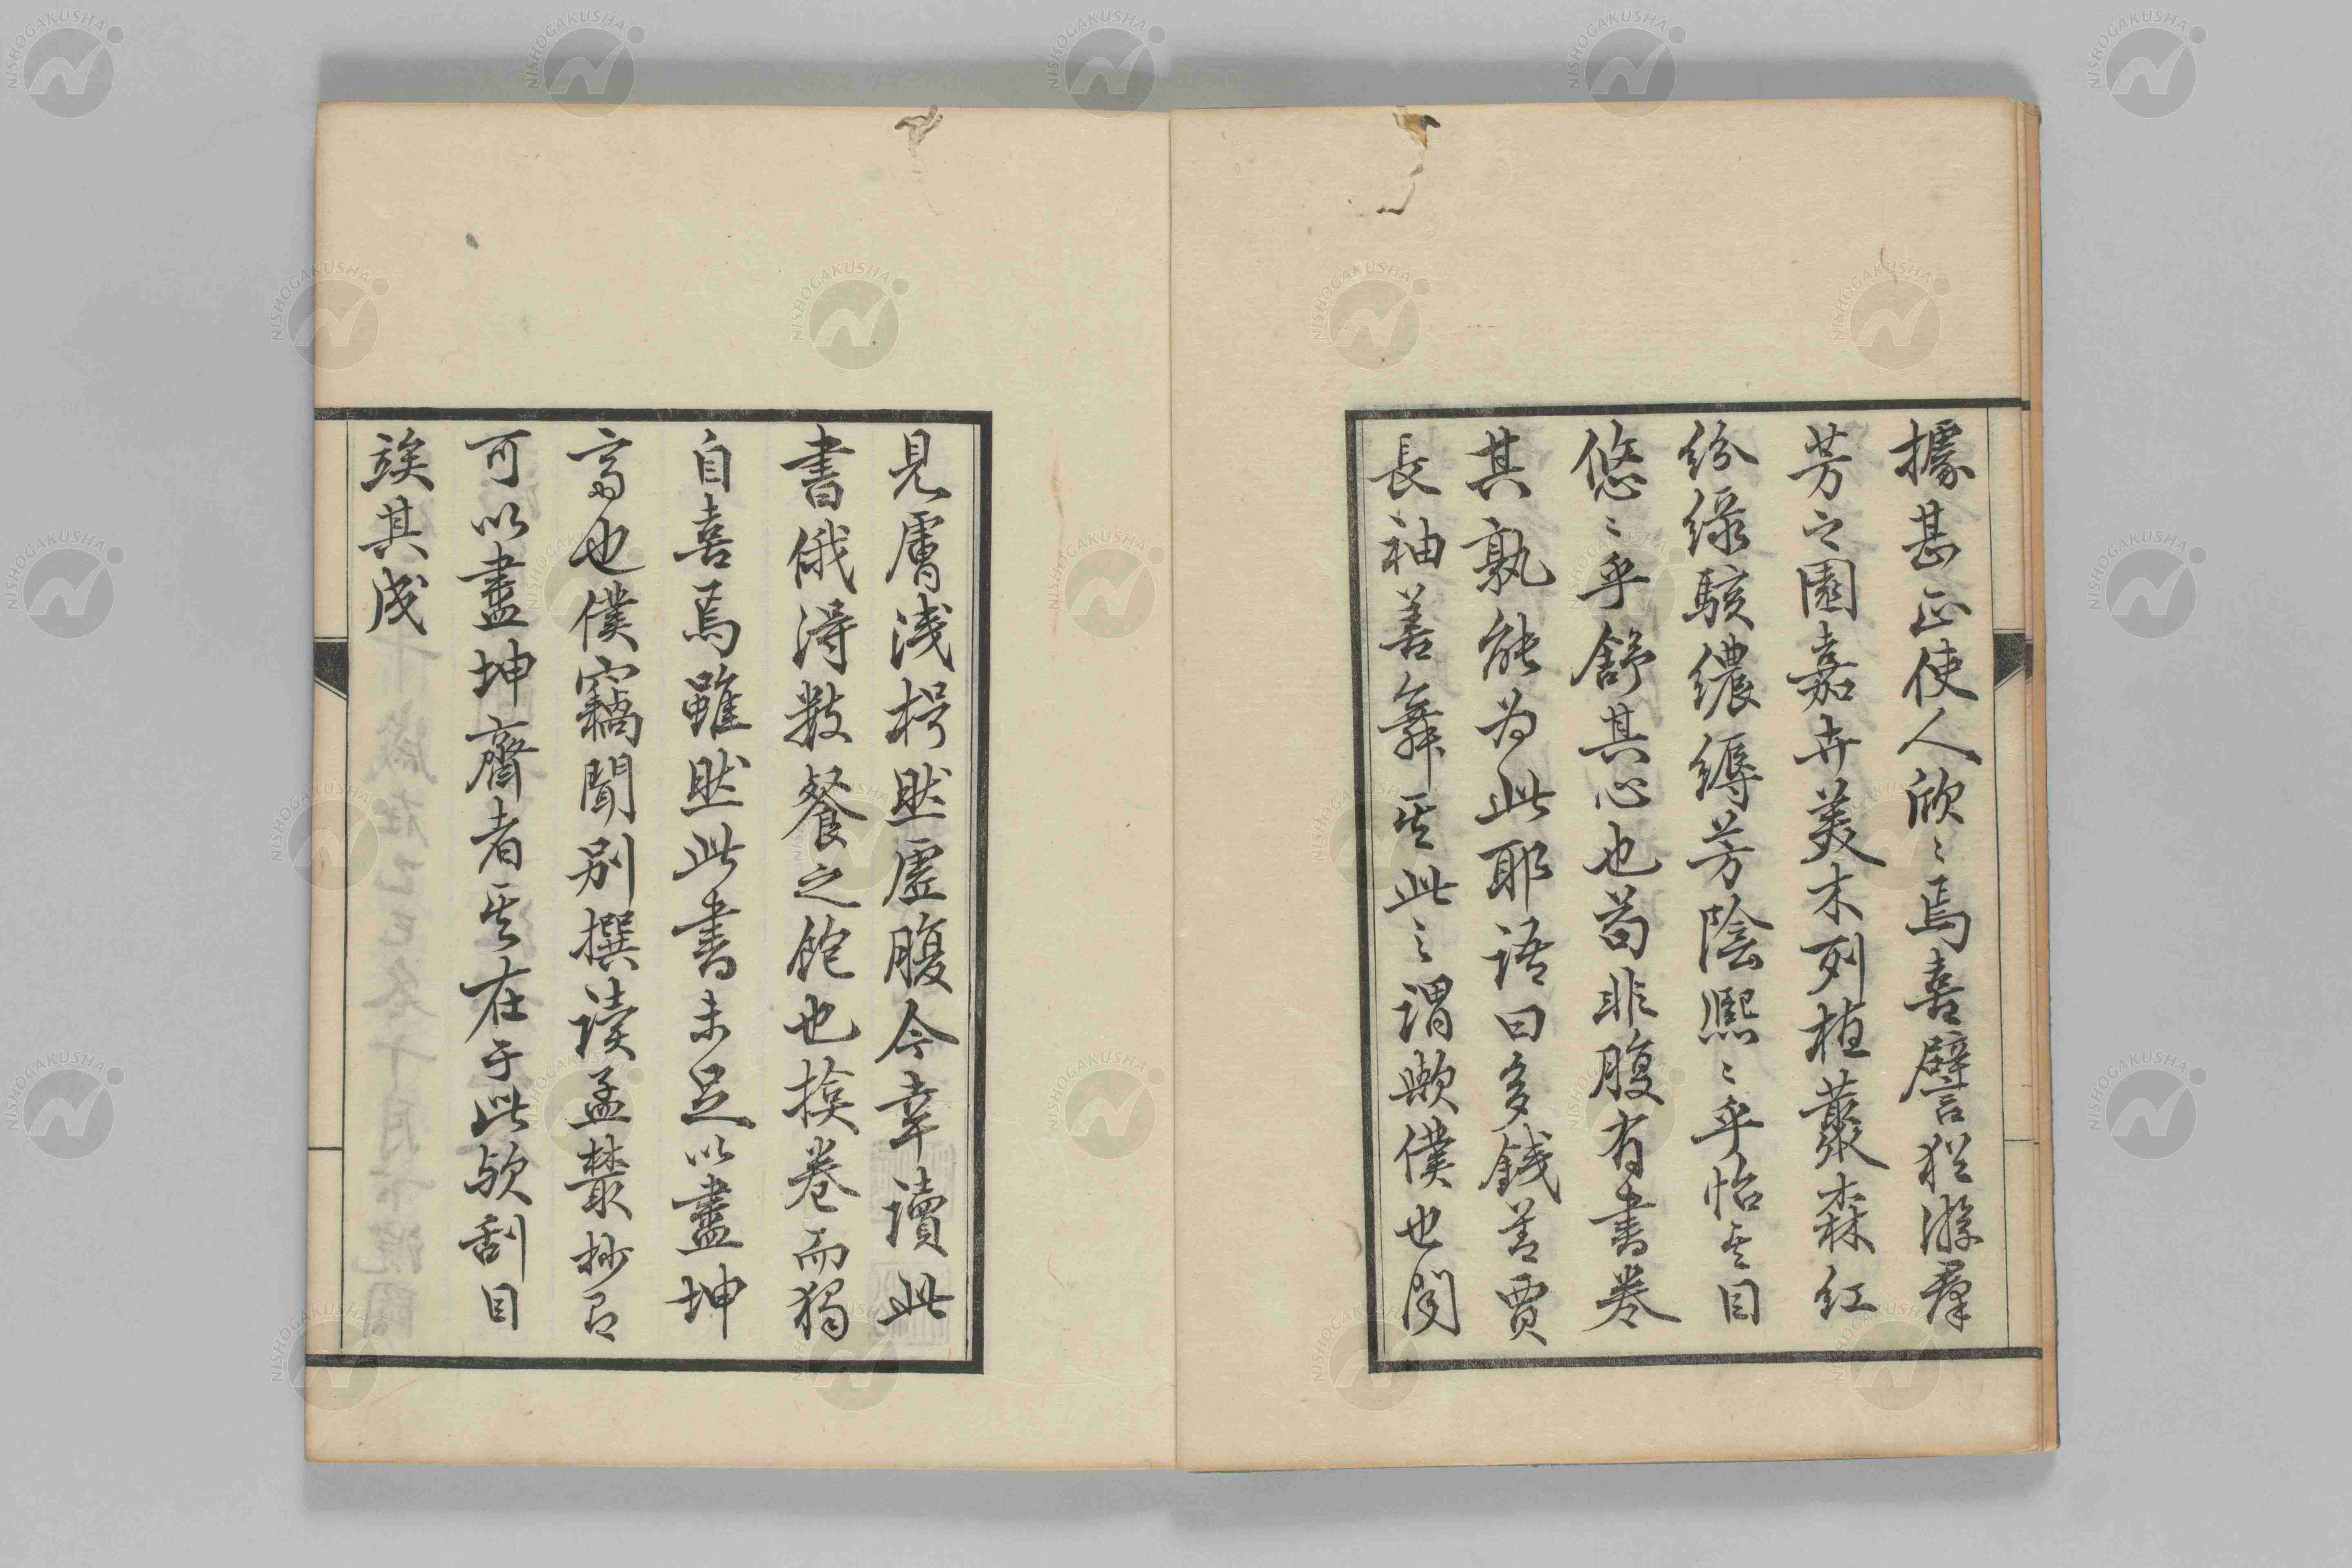 據甚正使人欣〻焉喜譬猶游群
芳之園嘉卉美木列植叢森紅
紛綠駭濃縟芳陰熙〻乎怡其目
悠〻乎舒其心也苟非腹有書卷
其孰能為此耶語曰多錢善賈
長袖善舞其此之謂歟僕也聞
見膚淺枵然虛腹今幸讀此
書俄得數餐之飽也掩卷而獨
自喜焉雖然此書未足以盡坤
齋也僕竊聞別撰讀孟叢抄則
可以盡坤齋者其在于此歟刮目
竢其成
NISHOGAKUSHA